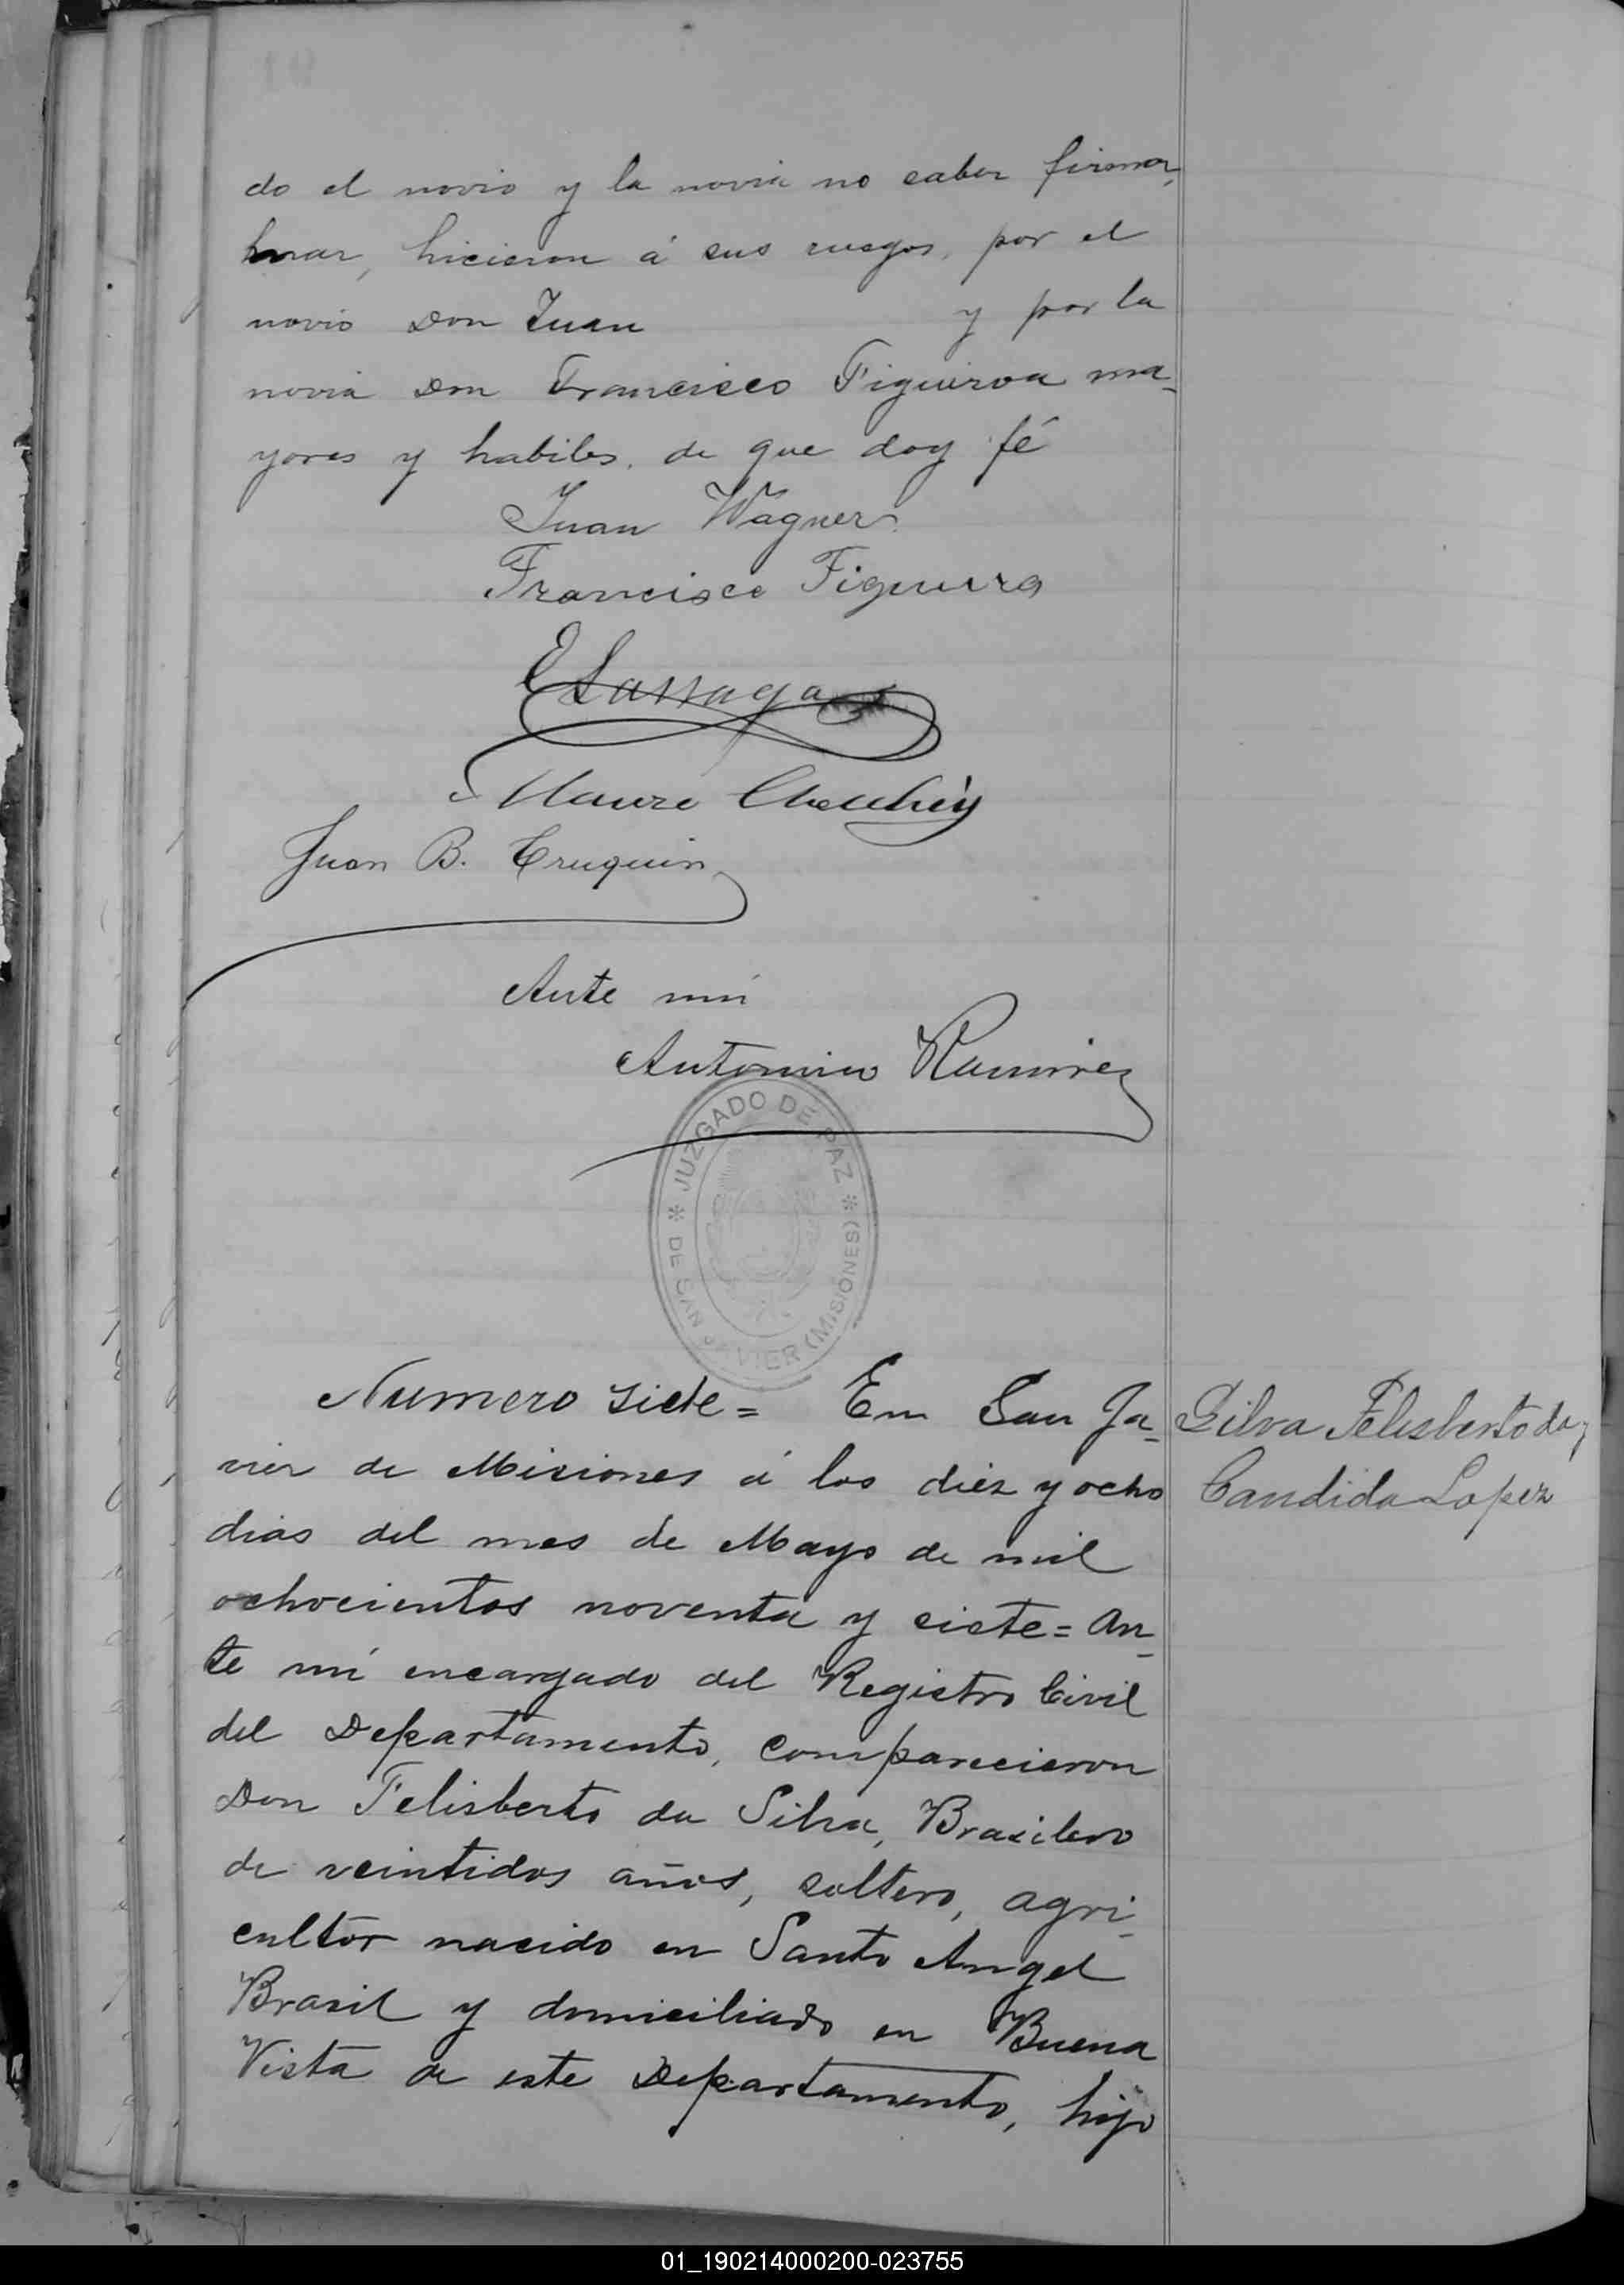 do el novio y la novia no saber firmar,
hicieron á sus ruegos, por el
novio Don Juan y por la
novia Don Francisco Figueroa ma-
yores y habiles, de que doy fé
Juan Wagner
Francisco Figueira
Mauro
Juan B. Truquin
Ante mi
Antonino Ramirez
JUZGADO DE PAZ
* DE SAN JAVIER (MISIONES) *
Numero siete = En San Ja-
vier de Misiones á los diez y ocho
dias del mes de Mayo de mil
ochocientos noventa y siete = an-
te mi encargado del Registro Civil
del Departamento, comparecieron
Don Felisberto da Silva, Brasilero
de veintidos años, soltero, agri-
cultor nacido en Santo Angel
Brasil y domiciliado en Buena
Vista de este Departamento, hijo
Silva Felisberto da y
Candida Lopez
01_190214000200-023755